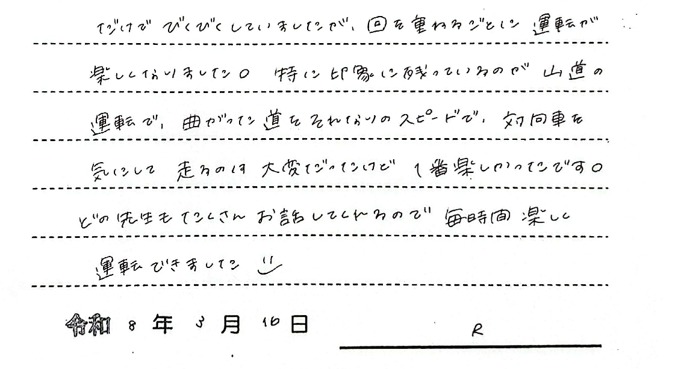 だけで びくびくしていましたが、回を重ねるごとに 運転が
楽しくなりました。 特に印象に残っているのが 山道の
運転で、曲がった道をそれなりのスピードで、対向車を
気にして 走るのは 大変だったけど 1番楽しかったです。
どの先生もたくさん お話してくれるので 毎時間 楽しく
運転できました
令和 8 年 3 月 16 日
R